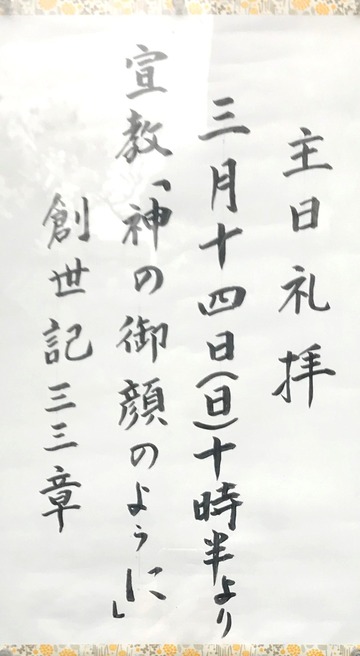 主日礼拝
三月十四日(日)十時半より
宣教「神の御顔のように」
創世記三三章